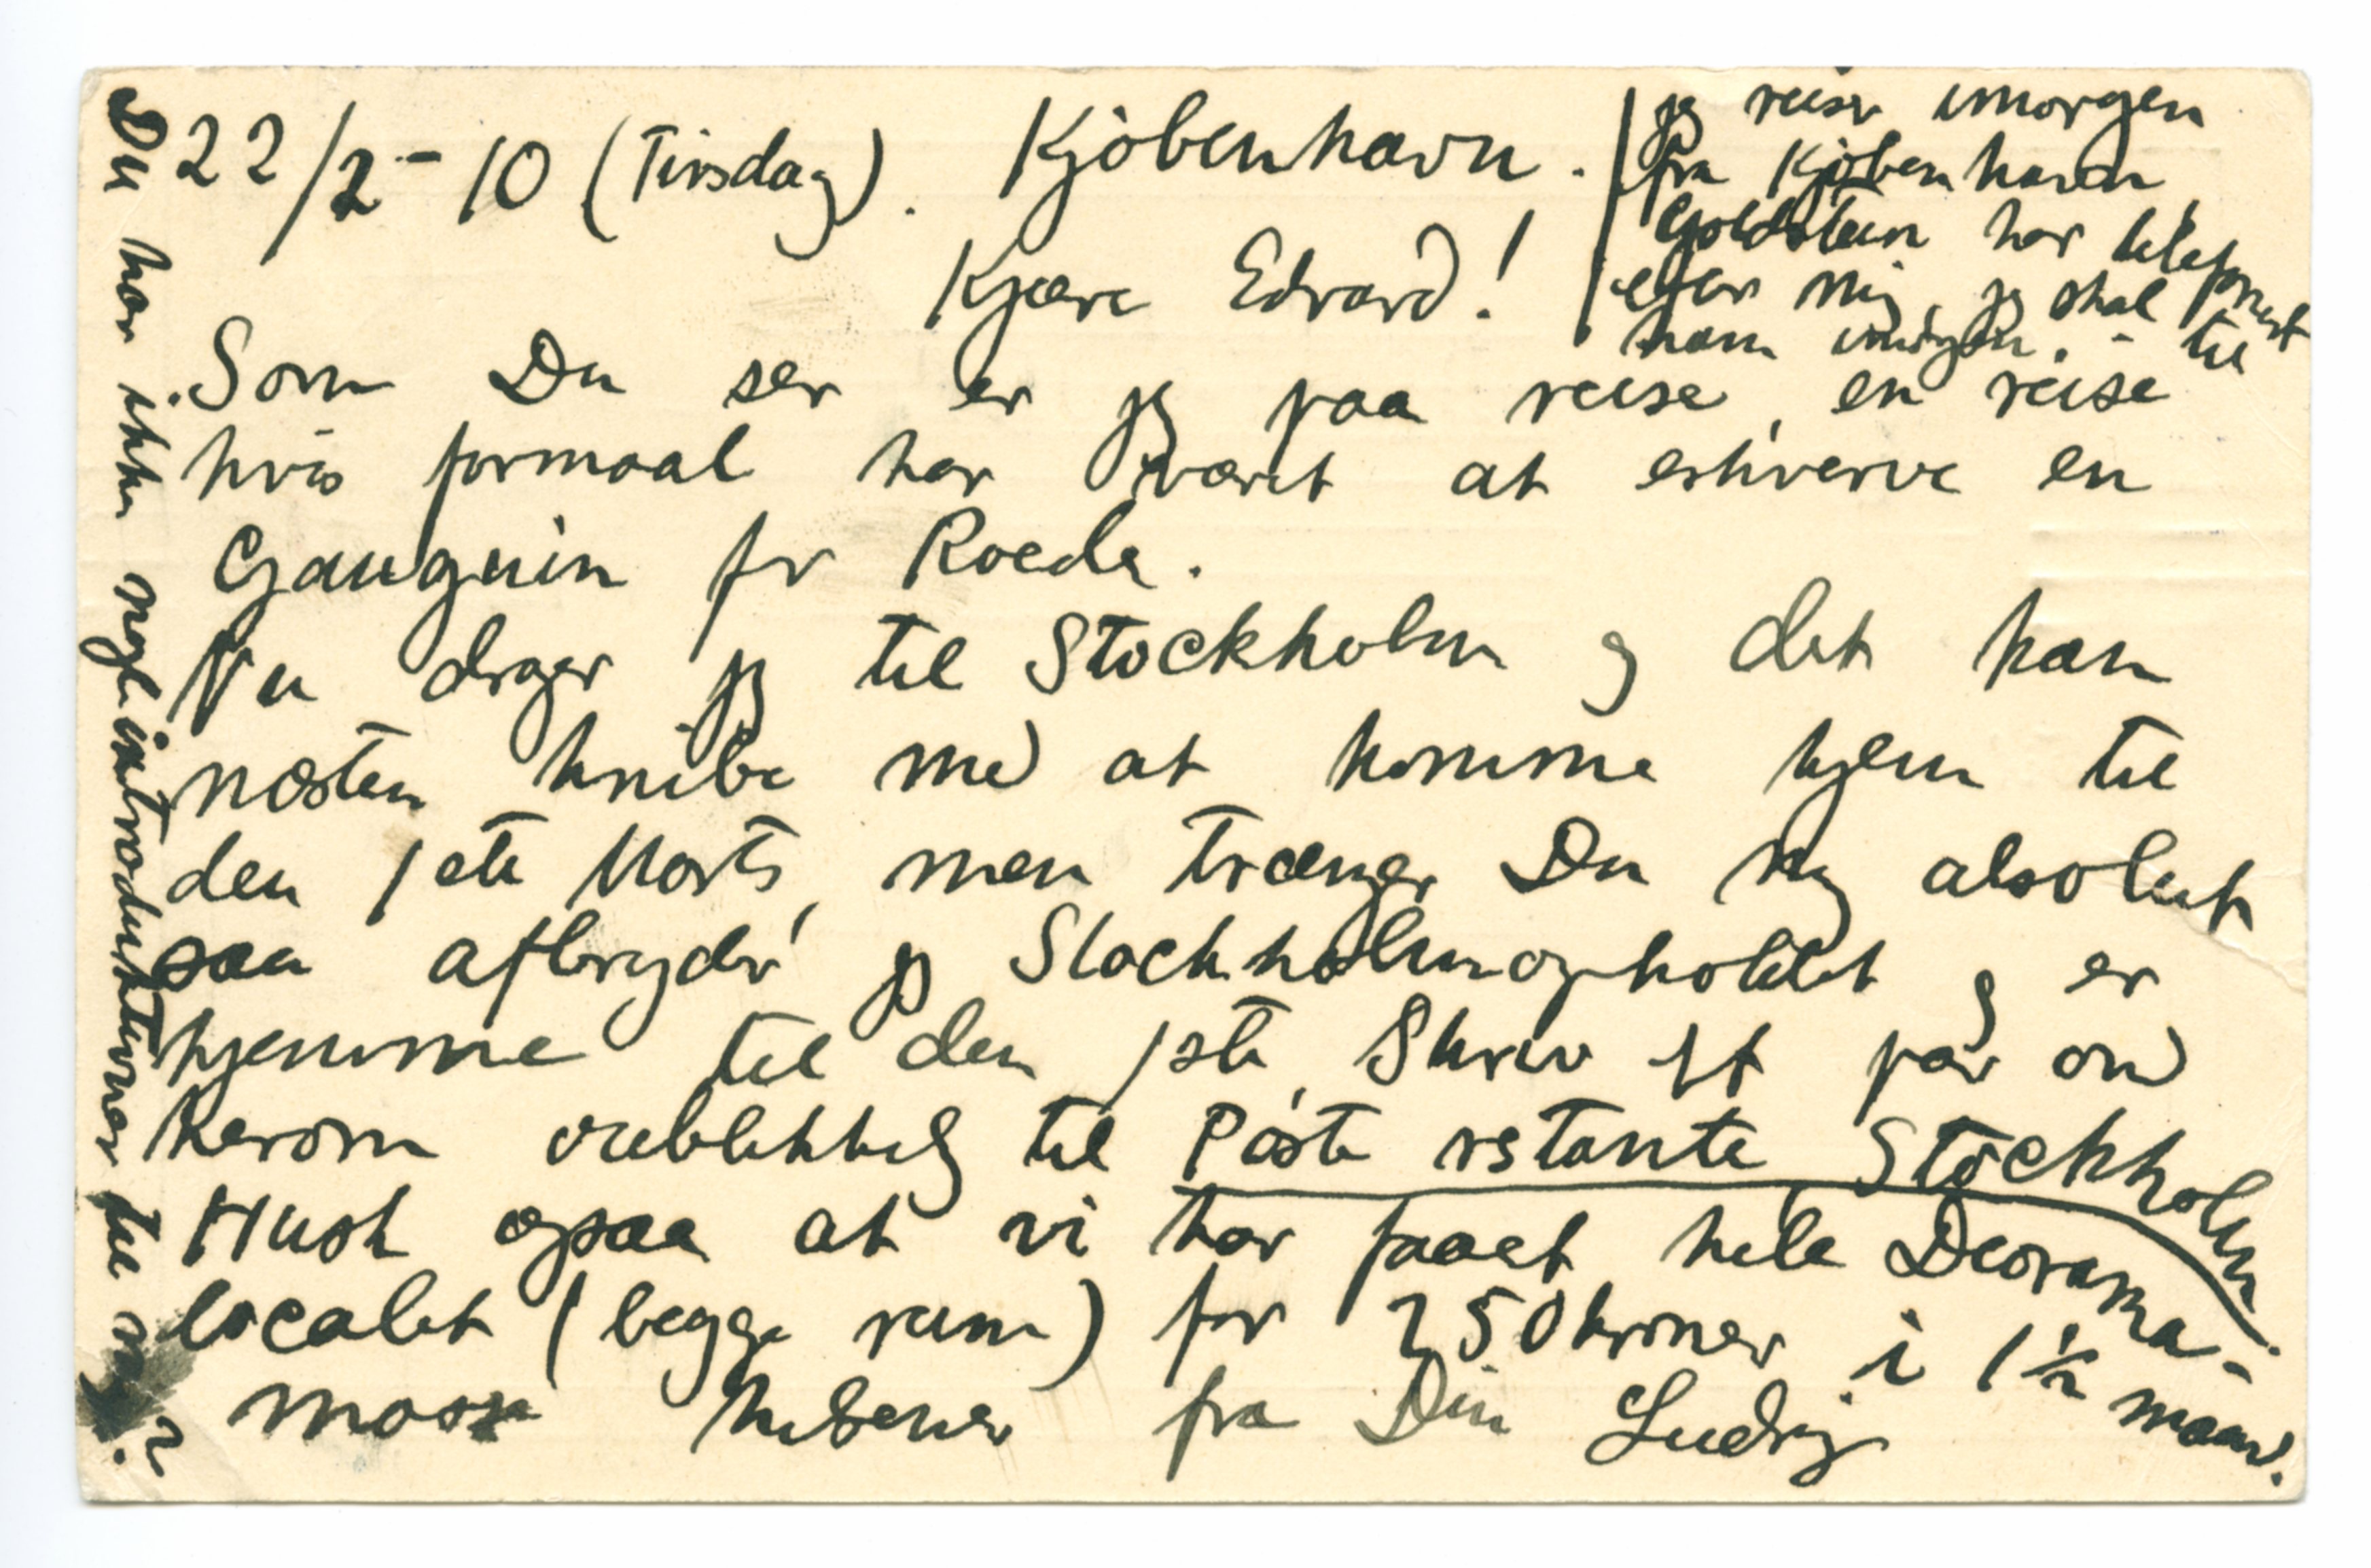 22/2-10 (Tirsdag). Kjöbenhavn.
Kjære Edvard!
Som Du ser er jeg paa reise, en reise
hvis formaal har været at erhverve en
Gauguin for Roede.
Nu drager jeg til Stockholm og det kan
næsten knibe med at komme hjem til
den 1ste Marts, men trænger Du mig absolut
saa afbryder jeg Stockholmopholdet og er
hjemme til den 1ste. Skriv et par ord
herom øieblikkelig til Poste restante Stockholm
Husk ogsaa at vi har faaet hele Diorama-
localet (begge rum) for 250 kroner i 1½ maaned.
masse hilsener fra Din Ludvig
jeg reiser imorgen
fra Kjøbenhavn,
Goldstein har telefonert
efter mig, jeg skal til
ham
Du har ikke nogle introduktioner til mig?